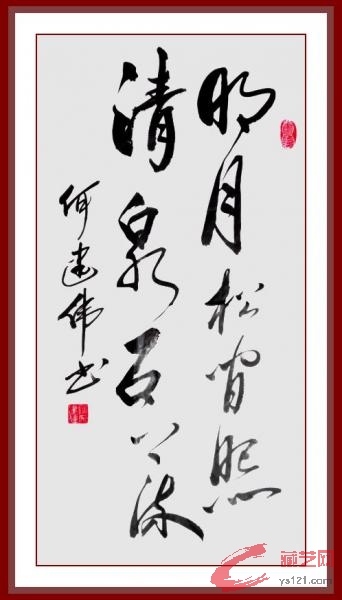 明月松间照
清泉石上流
何建伟书
藏艺网
ys121.com